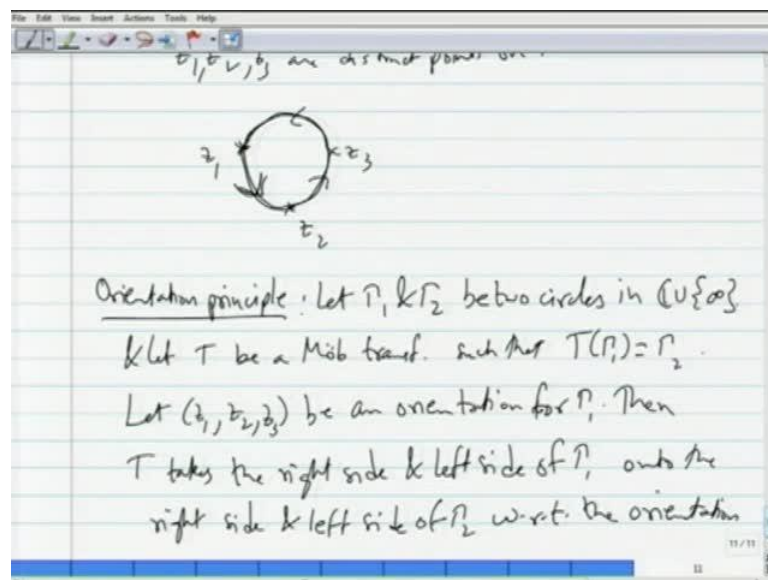 File Edit View Insert Actions Tools Help
z₁, z₂, z₃ are distinct points on
z₁
z₃
z₂
Orientation principle : Let Γ₁ & Γ₂ be two circles in ℂ∪{∞}
& let T be a Möb transf. such that T(Γ₁) = Γ₂.
Let (z₁, z₂, z₃) be an orientation for Γ₁. Then
T takes the right side & left side of Γ₁ onto the
right side & left side of Γ₂ w.r.t. the orientation
11/11
11